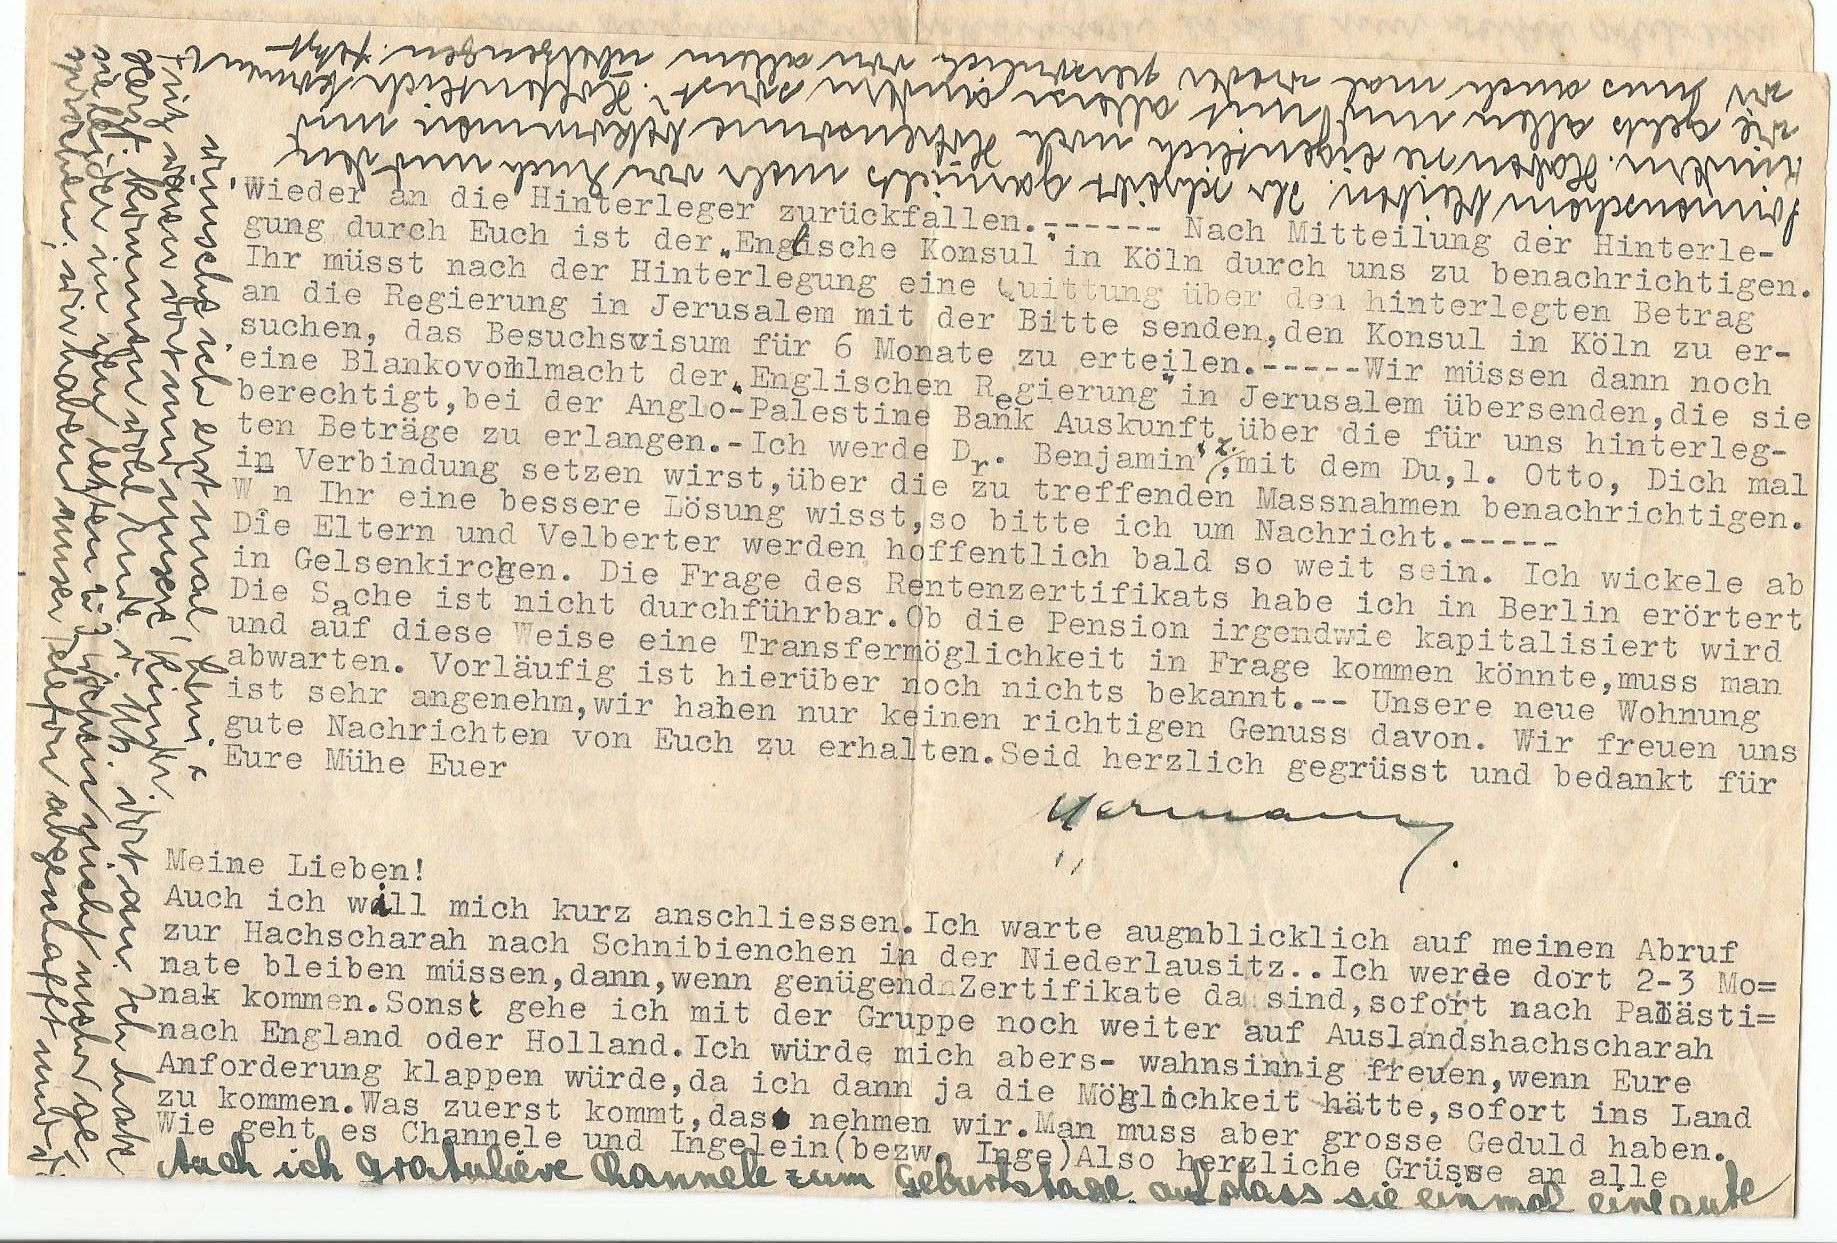 Wieder an die Hinterleger zurückfallen.------- Nach Mitteilung der Hinterle-
gung durch Euch ist der „Englische Konsul in Köln durch uns zu benachrichtigen.
Ihr müsst nach der Hinterlegung eine Quittung über den hinterlegten Betrag
an die Regierung in Jerusalem mit der Bitte senden,den Konsul in Köln zu er-
suchen, das Besuchsvisum für 6 Monate zu erteilen.-----Wir müssen dann noch
eine Blankovohlmacht der „Englischen Regierung" in Jerusalem übersenden,die sie
berechtigt,bei der Anglo-Palestine Bank Auskunft über die für uns hinterleg-
ten Beträge zu erlangen.-Ich werde Dr. Benjamin, mit dem Du,l. Otto, Dich mal
in Verbindung setzen wirst,über die zu treffenden Massnahmen benachrichtigen.
W n Ihr eine bessere Lösung wisst,so bitte ich um Nachricht.-----
Die Eltern und Velberter werden hoffentlich bald so weit sein. Ich wickele ab
in Gelsenkirchen. Die Frage des Rentenzertifikats habe ich in Berlin erörtert
Die Sache ist nicht durchführbar.Ob die Pension irgendwie kapitalisiert wird
und auf diese Weise eine Transfermöglichkeit in Frage kommen könnte,muss man
abwarten. Vorläufig ist hierüber noch nichts bekannt.-- Unsere neue Wohnung
ist sehr angenehm,wir haben nur keinen richtigen Genuss davon. Wir freuen uns
gute Nachrichten von Euch zu erhalten.Seid herzlich gegrüsst und bedankt für
Eure Mühe Euer
Hermann.
Meine Lieben!
Auch ich will mich kurz anschliessen.Ich warte augnblicklich auf meinen Abruf
zur Hachscharah nach Schnibienchen in der Niederlausitz..Ich werde dort 2-3 Mo=
nate bleiben müssen,dann,wenn genügend Zertifikate da sind,sofort nach Palästi=
nak kommen.Sonst gehe ich mit der Gruppe noch weiter auf Auslandshachscharah
nach England oder Holland.Ich würde mich abers- wahnsinnig freuen,wenn Eure
Anforderung klappen würde,da ich dann ja die Möglichkeit hätte,sofort ins Land
zu kommen.Was zuerst kommt,das nehmen wir.Man muss aber grosse Geduld haben.
Wie geht es Channele und Ingelein(bezw. Inge)Also herzliche Grüsse an alle
Auch ich gratuliere Channele zum Geburtstage, auf dass sie einmal eine gute
sprochen, wir haben unser Telefon abgeschafft und
vielleicht in den letzten nicht mehr ge-
Herzl. kommen wohl heute dort an. Ich hatte
Fritz waren dort und unsere Kinder.
wünsche ich erst mal
Kindern. Ihr schreibt garnichts mehr von Euch und den
Haben sie eigentlich noch bekommen und
wie gehts allen und was sonst? Hoffentlich können
wir uns auch mal wieder persönlich von allem überzeugen.